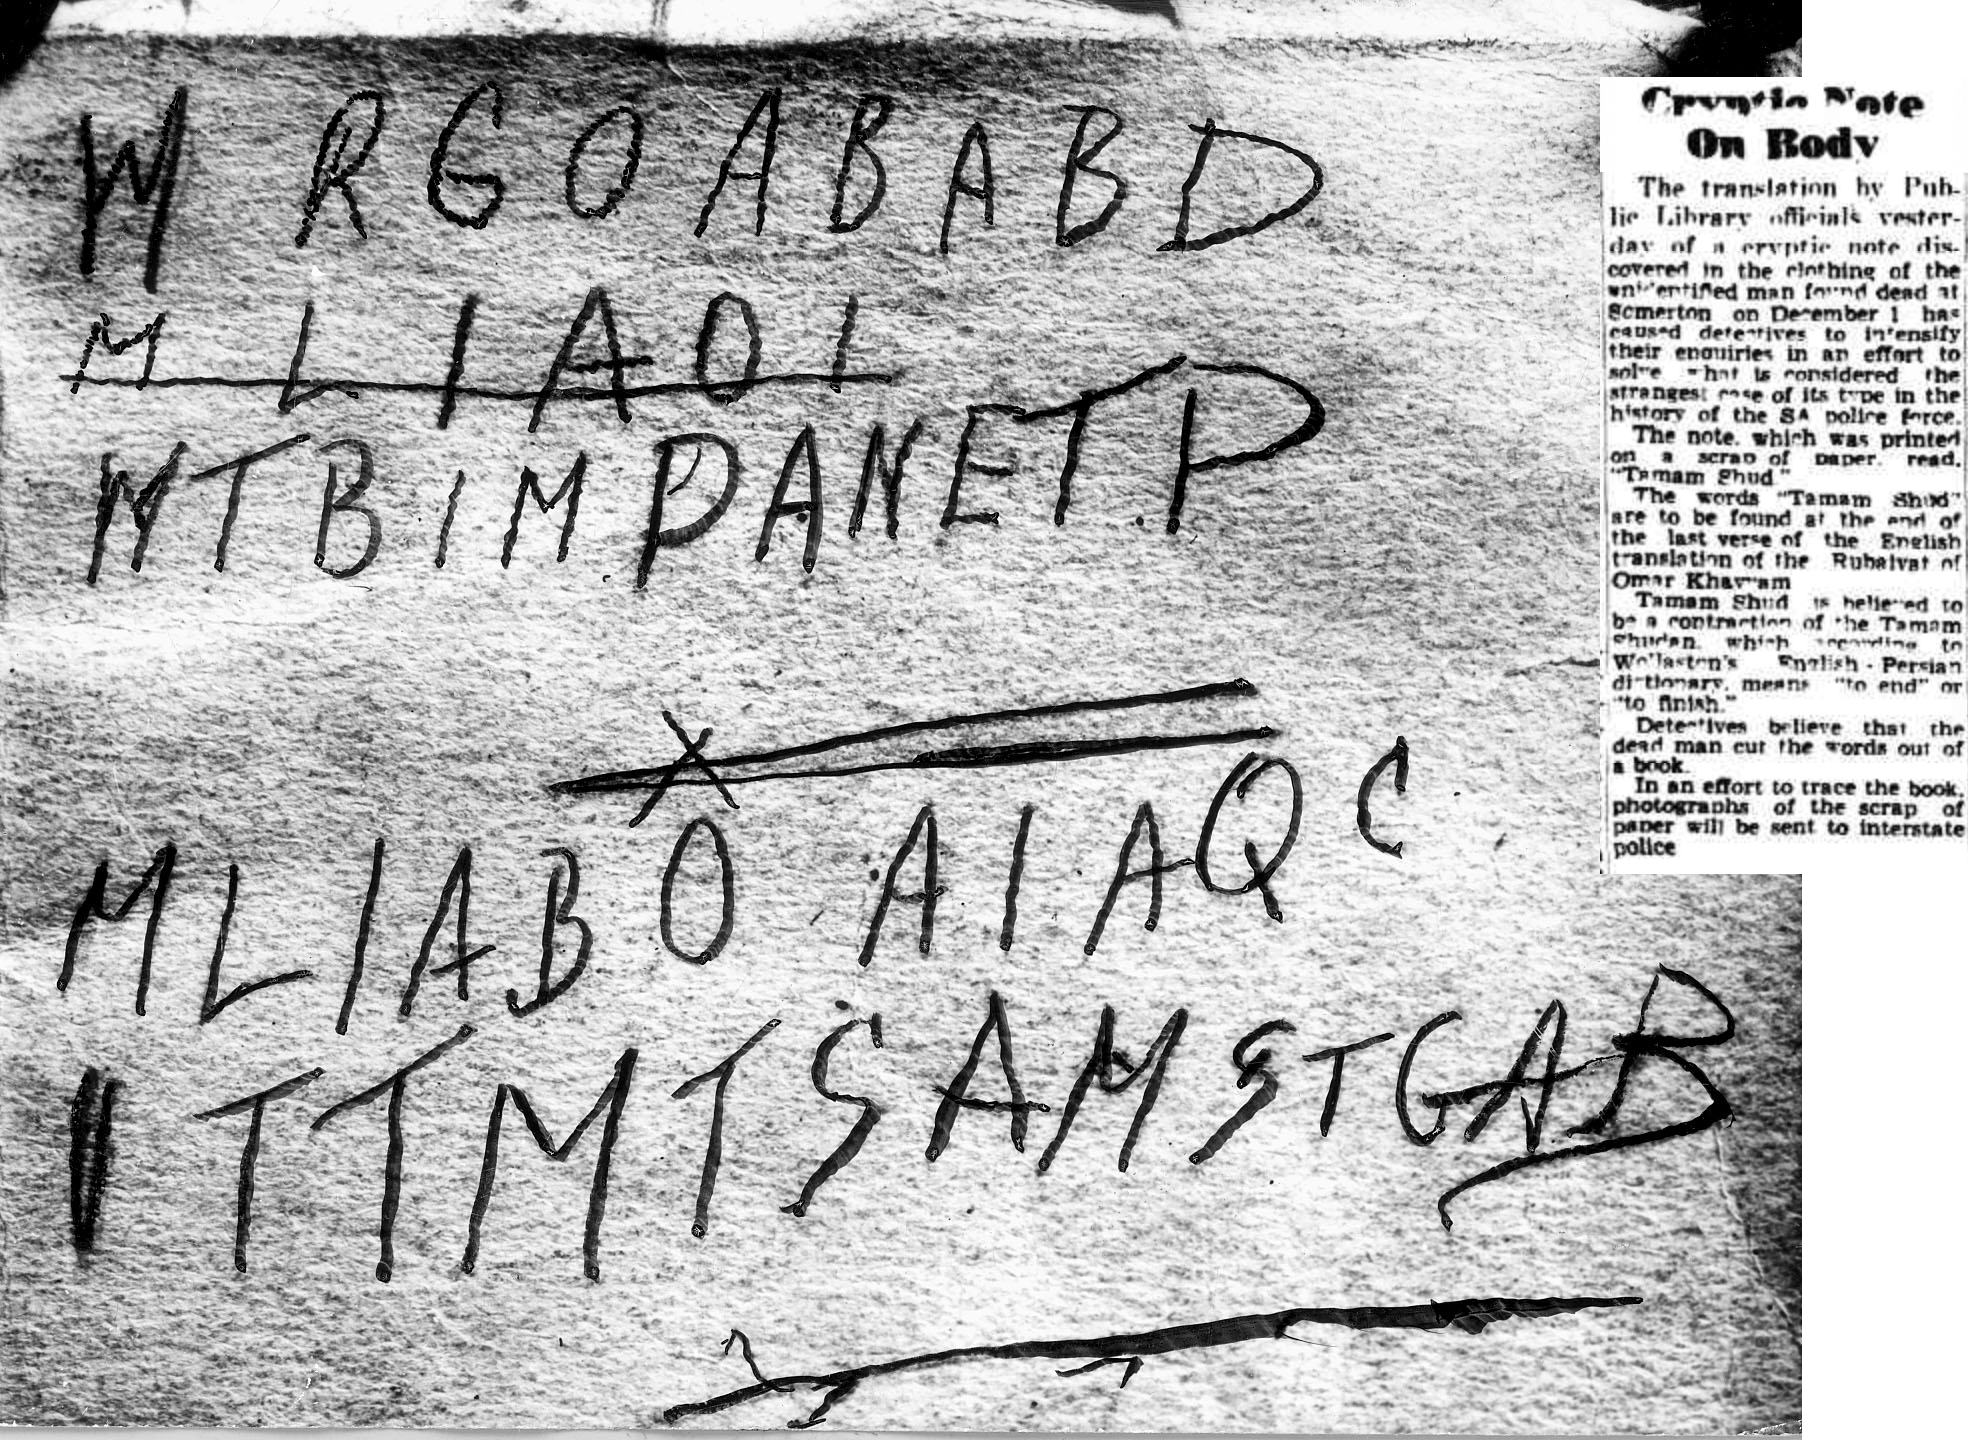 W RGOABABD
MLIAOI
WTBIMPANETP
X
MLIABO AIAQC
ITTMTSAMSTGAB
Cryptic Note
On Body
The translation by Pub-
lic Library officials yester-
day of a cryptic note dis-
covered in the clothing of the
unidentified man found dead at
Somerton on December 1 has
caused detectives to intensify
their enquiries in an effort to
solve what is considered the
strangest case of its type in the
history of the SA police force.
The note, which was printed
on a scrap of paper, read,
"Tamam Shud"
The words "Tamam Shud"
are to be found at the end of
the last verse of the English
translation of the Rubaiyat of
Omar Khayyam
Tamam Shud is believed to
be a contraction of the Tamam
Shudan, which according to
Wollaston's English-Persian
dictionary, means "to end" or
"to finish."
Detectives believe that the
dead man cut the words out of
a book.
In an effort to trace the book,
photographs of the scrap of
paper will be sent to interstate
police